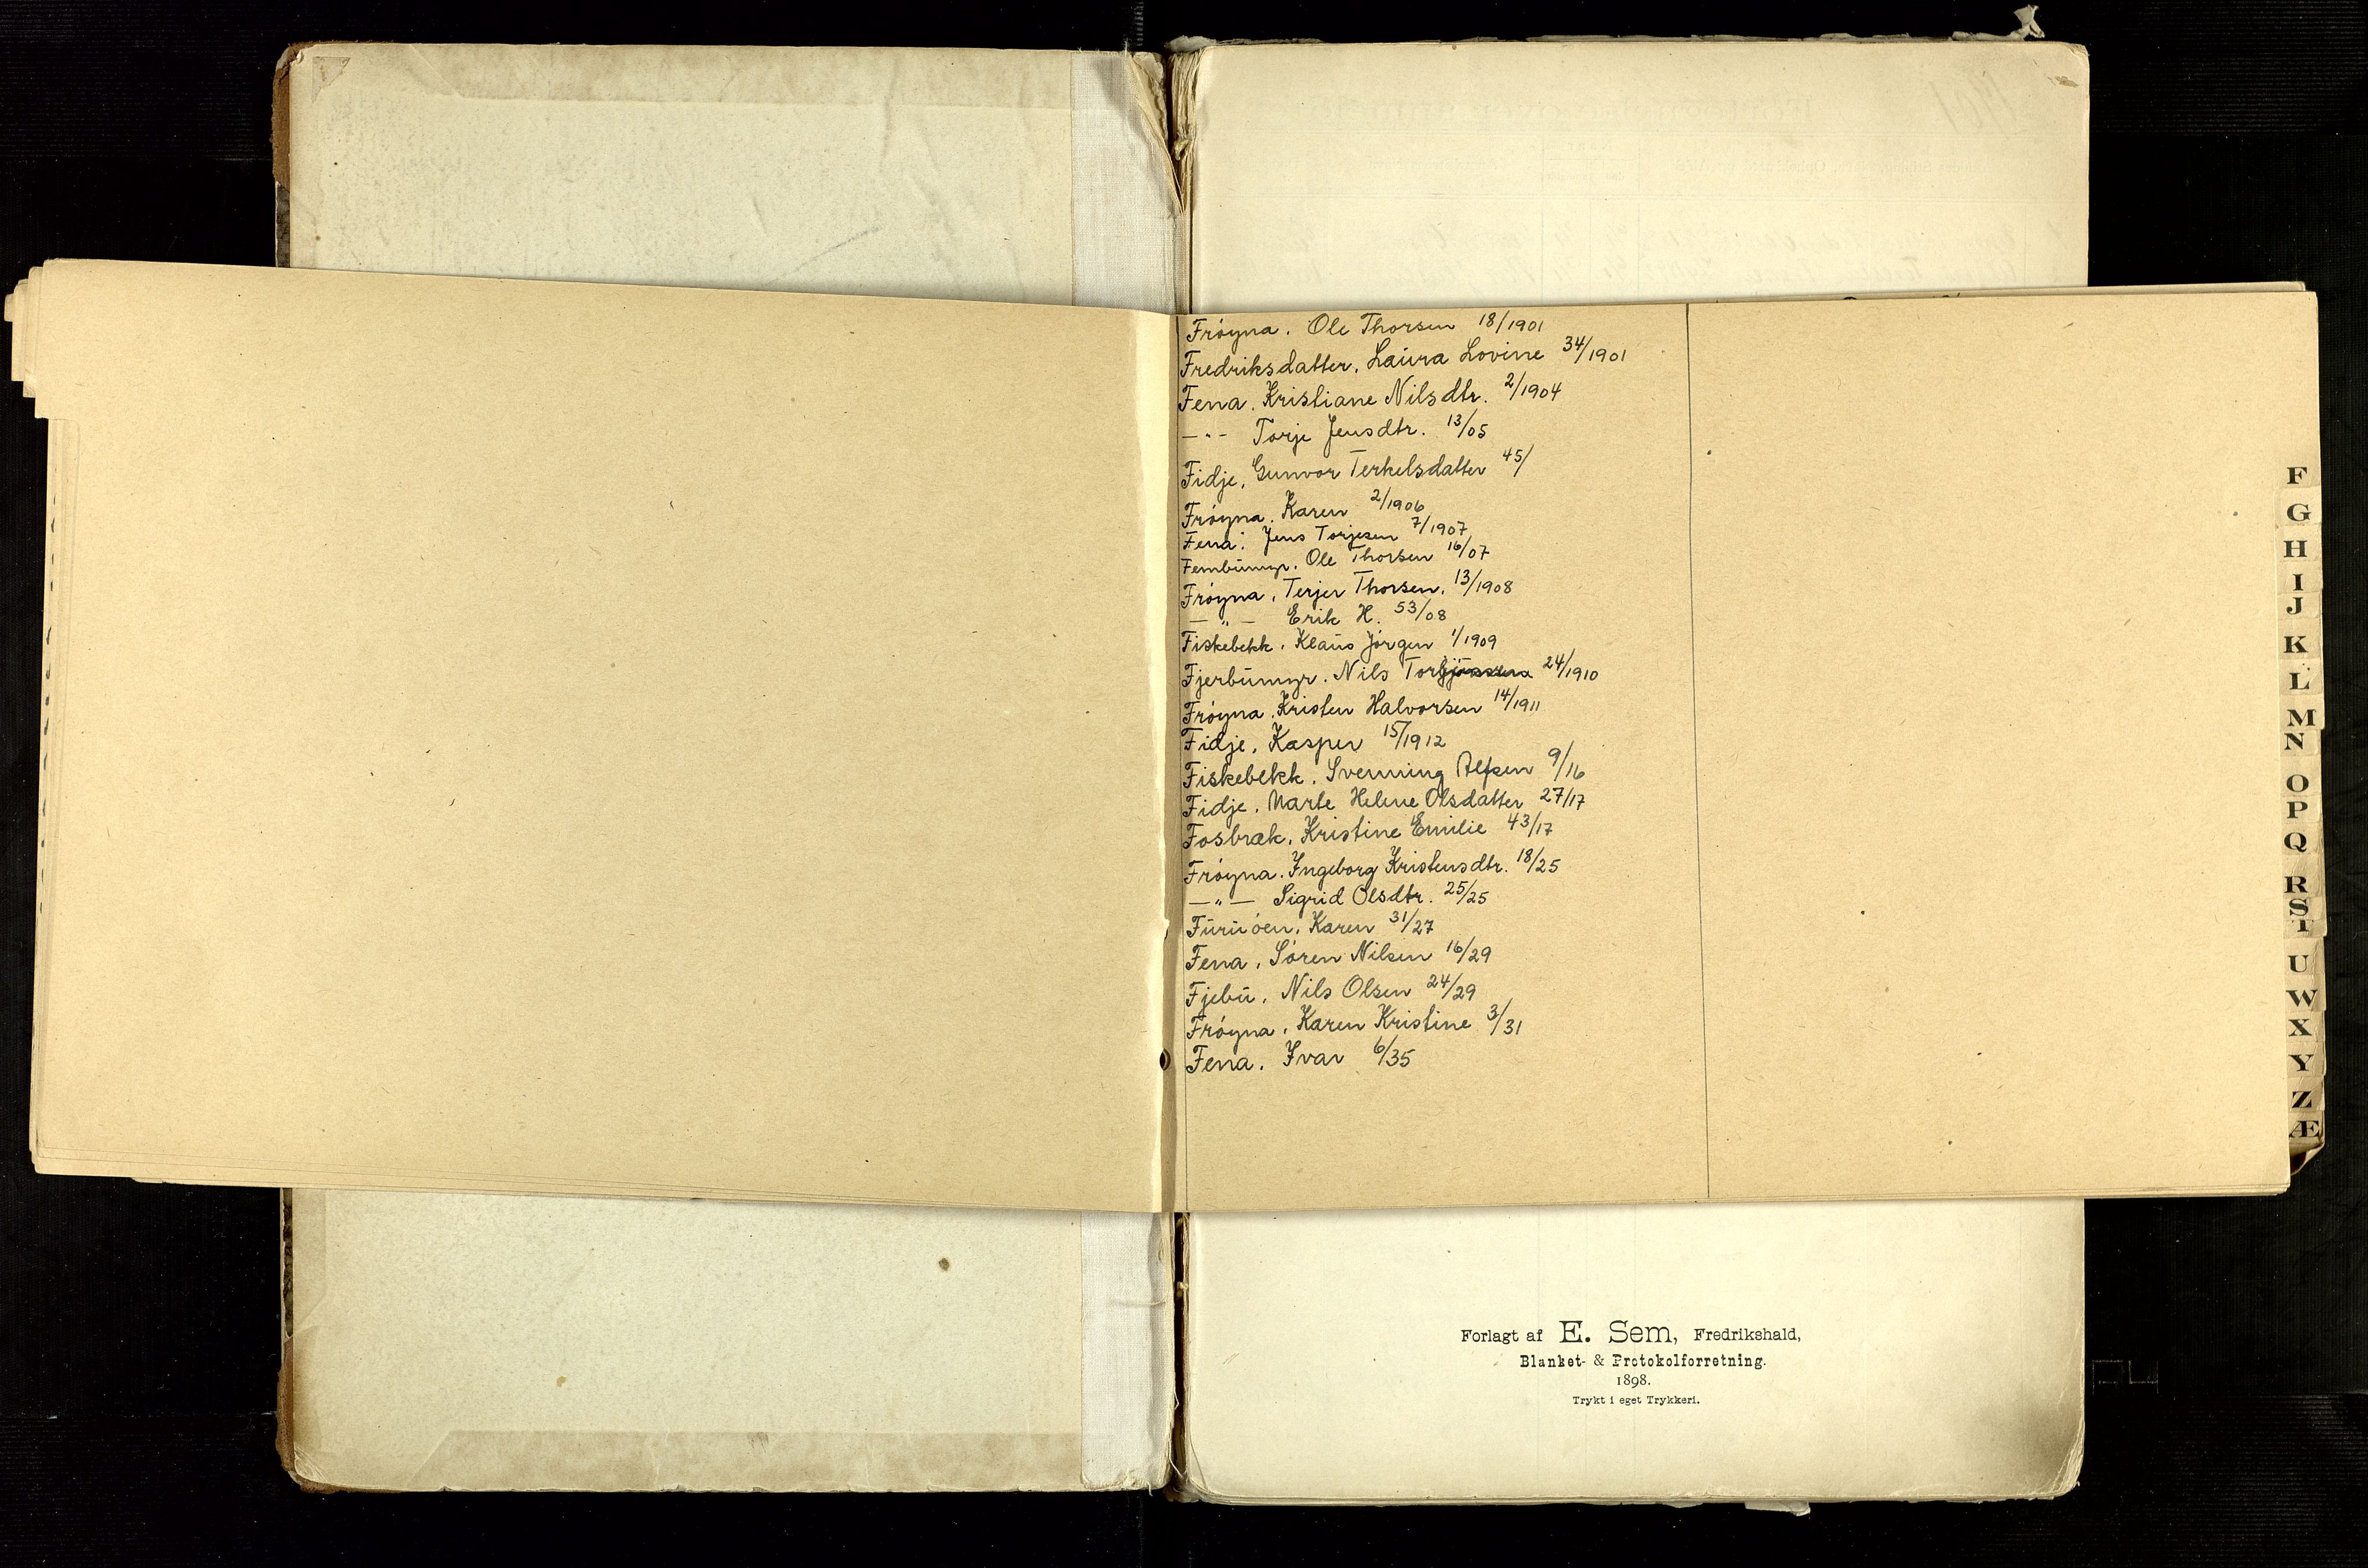 Frøyna. Ole Thorsen 18/1901
Fredriksdatter, Laura Lovine 34/1901
Fena. Kristiane Nilsdtr. 2/1904
—"— Torje Jensdtr. 13/05
Fidje, Gunvor Terkelsdatter 45/
Frøyna. Karen 2/1906
Fena. Jens Torjesen 7/1907
Fembumyr. Ole Thorsen 16/07
Frøyna, Terjer Thorsen, 13/1908
—"— Erik H. 53/08
Fiskebekk. Klaus Jørgen 1/1909
Fjerbumyr. Nils 24/1910
Frøyna. Kristen Halvorsen 14/1911
Fidje, Kasper 15/1912
Fiskebekk. Svenning Alfsen 9/16
Fidje. Marte Helene Olsdatter 27/17
Fosbræk, Kristine Emilie 43/17
Frøyna. Ingeborg Kristensdtr. 18/25
—"— Sigrid Olsdtr. 25/25
Furuøen, Karen 31/27
Fena, Søren Nilsen 16/29
Fjebu, Nils Olsen 24/29
Frøyna, Karen Kristine 3/31
Fena, Ivar 6/35
F
G
H
I
J
K
L
M
N
O
P
Q
R
S
T
U
W
X
Y
Z
Æ
Forlagt af E. Sem, Fredrikshald,
Blanket- & Protokolforretning.
1898.
Trykt i eget Trykkeri.